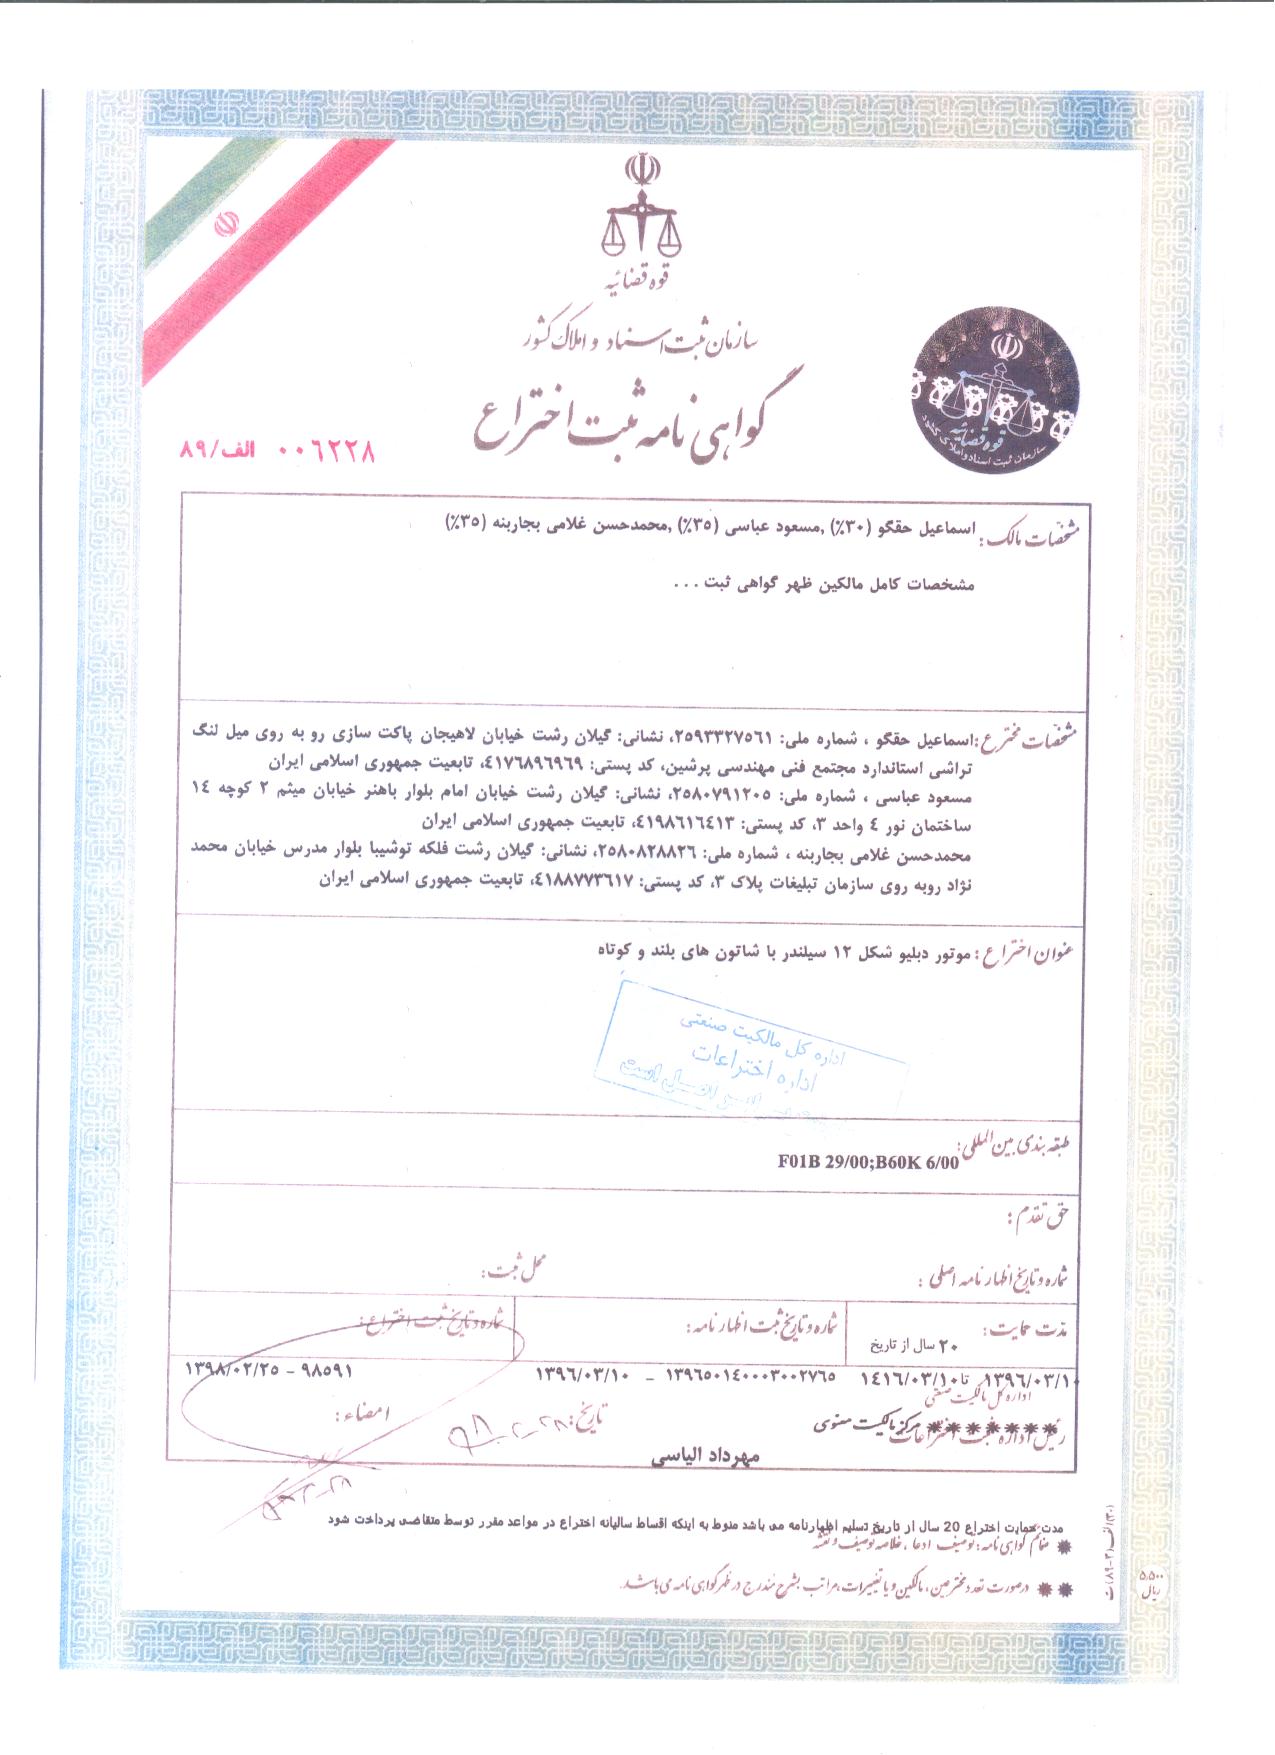 قوه قضائیه
سازمان ثبت اسناد و املاک کشور
گواهی نامه ثبت اختراع
۰۰۶۲۲۸ الف/۸۹
قوه قضائیه
سازمان ثبت اسناد و املاک کشور
مشخصات مالک: اسماعیل حقگو (۳۰٪) ,مسعود عباسی (۳۵٪) ,محمدحسن غلامی بجاربنه (۳۵٪)
مشخصات کامل مالکین ظهر گواهی ثبت ...
مشخصات مخترع: اسماعیل حقگو ، شماره ملی: ۲۵۹۳۳۲۷۵۶۱، نشانی: گیلان رشت خیابان لاهیجان پاکت سازی رو به روی میل لنگ
تراشی استاندارد مجتمع فنی مهندسی پرشین، کد پستی: ۴۱۷۶۸۹۶۹۶۹، تابعیت جمهوری اسلامی ایران
مسعود عباسی ، شماره ملی: ۲۵۸۰۷۹۱۲۰۵، نشانی: گیلان رشت خیابان امام بلوار باهنر خیابان میثم ۲ کوچه ۱۴
ساختمان نور ۴ واحد ۳، کد پستی: ۴۱۹۸۶۱۶۴۱۳، تابعیت جمهوری اسلامی ایران
محمدحسن غلامی بجاربنه ، شماره ملی: ۲۵۸۰۸۲۸۸۲۶، نشانی: گیلان رشت فلکه توشیبا بلوار مدرس خیابان محمد
نژاد روبه روی سازمان تبلیغات پلاک ۳، کد پستی: ۴۱۸۸۷۷۳۶۱۷، تابعیت جمهوری اسلامی ایران
عنوان اختراع: موتور دبلیو شکل ۱۲ سیلندر با شاتون های بلند و کوتاه
اداره کل مالکیت صنعتی
اداره اختراعات
طبقه بندی بین المللی:
F01B 29/00;B60K 6/00
حق تقدم:
شماره و تاریخ اظهارنامه اصلی: محل ثبت:
مدت حمایت: شماره و تاریخ ثبت اظهارنامه: شماره و تاریخ ثبت اختراع:
۲۰ سال از تاریخ
۱۳۹۶/۰۳/۱۰ تا ۱۴۱۶/۰۳/۱۰ ۱۳۹۶۵۰۱۴۰۰۰۳۰۰۲۷۶۵ - ۱۳۹۶/۰۳/۱۰ ۹۸۵۹۱ - ۱۳۹۸/۰۲/۲۵
اداره کل مالکیت صنعتی
رئیس اداره ثبت اختراعات مرکز مالکیت معنوی تاریخ: امضاء:
مهرداد الیاسی
مدت حمایت اختراع 20 سال از تاریخ تسلیم اظهارنامه می باشد منوط به اینکه اقساط سالیانه اختراع در مواعد مقرر توسط متقاضی پرداخت شود
✱ ضمائم گواهی نامه: توصیف، ادعا، خلاصه توصیف و نقشه
✱✱ درصورت تعدد مخترعین، مالکین و یا تغییرات، مراتب بشرح مندرج در ظهر گواهی نامه می باشد.
۵,۵۰۰
ریال